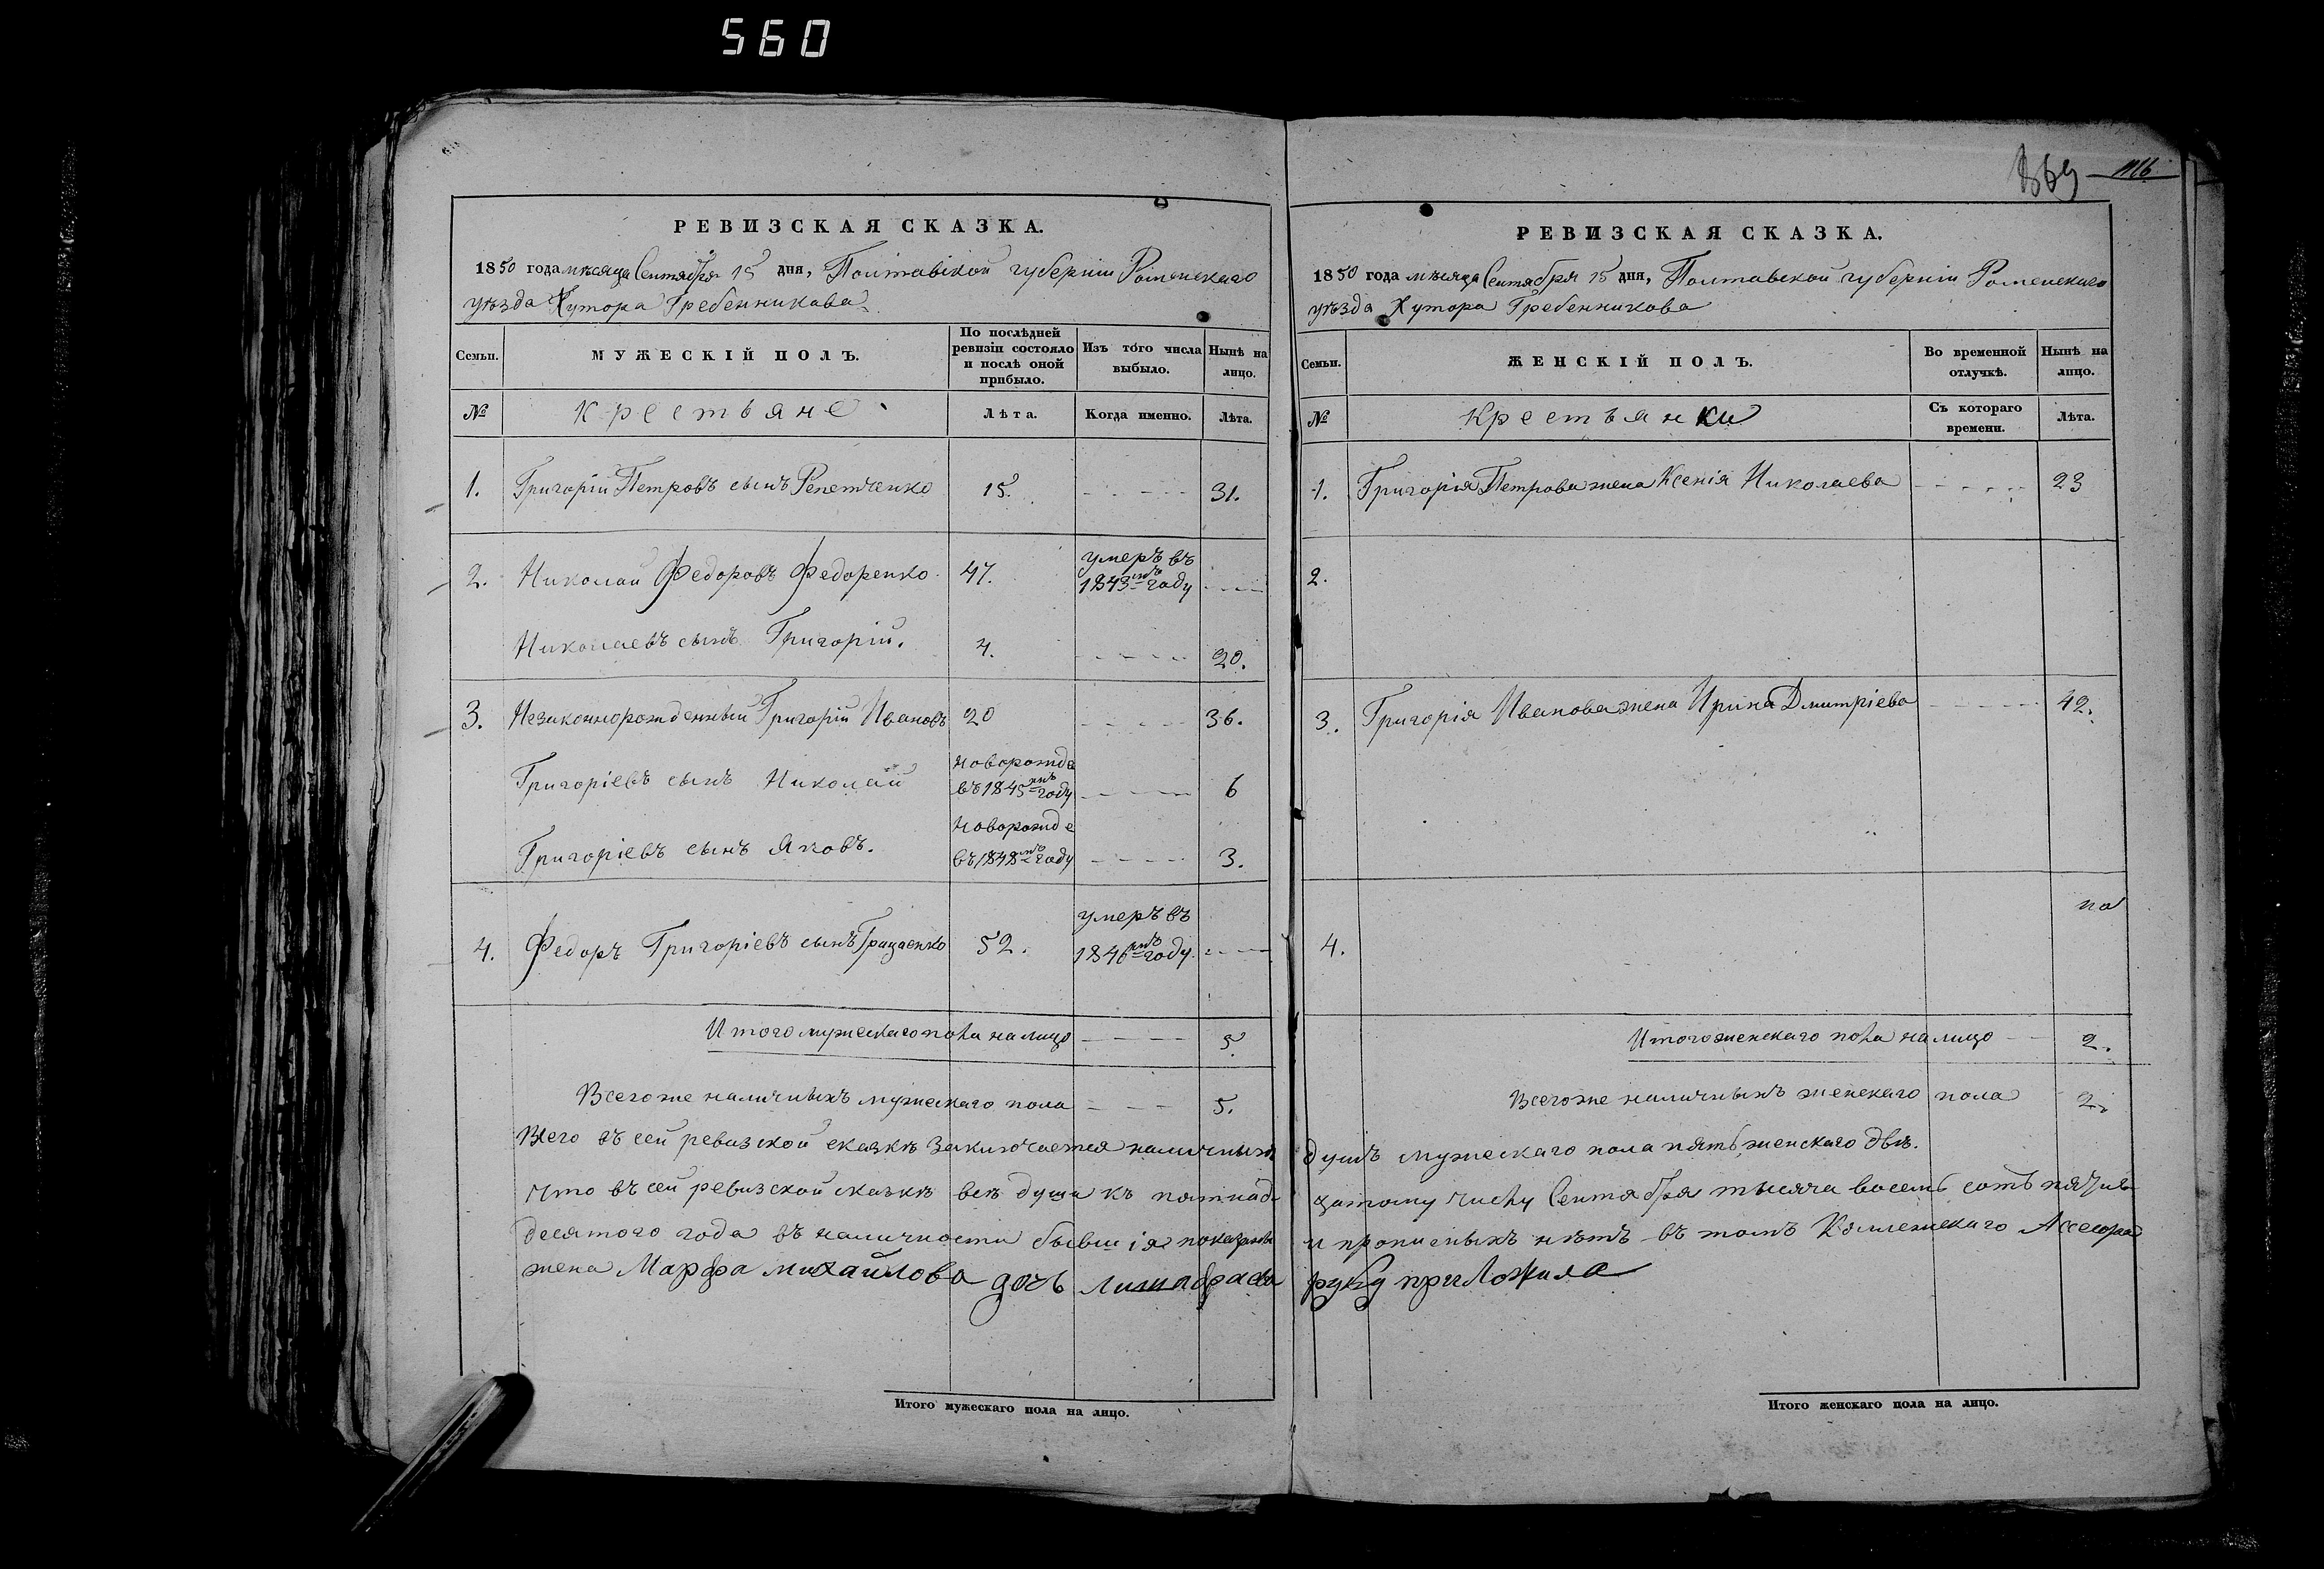 560
869 1116.
РЕВИЗСКАЯ СКАЗКА.
1850 года мѣсяца Сентября 15 дня, Полтавской губерніи Роменскаго
уѣзда Хутора Гребенникова
Семьи.
МУЖЕСКІЙ ПОЛЪ.
По послѣдней ревизіи состояло и послѣ оной прибыло.
Изъ того числа выбыло.
Нынѣ на лицо.
№
Крестьяне
Лѣта.
Когда именно.
Лѣта.
1. Григорій Петровъ сынъ Репетченко 15. 31.
2. Николай Федоровъ Федоренко 47. умеръ въ 1843мъ году
Николаевъ сынъ Григорій. 4. 20.
3. Незаконнорожденный Григорій Ивановъ 20 36.
Григоріевъ сынъ Николай новорожде въ 1845мъ году 6
Григоріевъ сынъ Яковъ. новорожде въ 1848мъ году 3.
4. Федоръ Григоріевъ сынъ Грицаенко 52. умеръ въ 1846мъ году
Итого мужескаго пола на лицо 5.
Всего же наличныхъ мужескаго пола 5.
РЕВИЗСКАЯ СКАЗКА.
1850 года мѣсяца Сентября 15 дня, Полтавской губерніи Роменскаго
уѣзда Хутора Гребенникова
Семьи.
ЖЕНСКІЙ ПОЛЪ.
Во временной отлучкѣ.
Нынѣ на лицо.
№
Крестьянки
Съ котораго времени.
Лѣта.
1. Григорія Петрова жена Ксенія Николаева 23
2.
3. Григорія Иванова жена Ирина Дмитріева 42.
4.
Итого женскаго пола на лицо 2.
Всего же наличныхъ женскаго пола 2.
Всего въ сей ревизской сказкѣ заключается наличныхъ душъ мужескаго пола пять, женскаго двѣ.
Что въ сей ревизской сказкѣ всѣ души къ пятнадцатому числу Сентября тысяча восемь сотъ пятьдесятого года въ наличности бывшія показаны и прописныхъ нѣтъ въ томъ Коллежскаго Ассесора
жена Марфа михайлова дочь руку приложила
Итого мужескаго пола на лицо.
Итого женскаго пола на лицо.